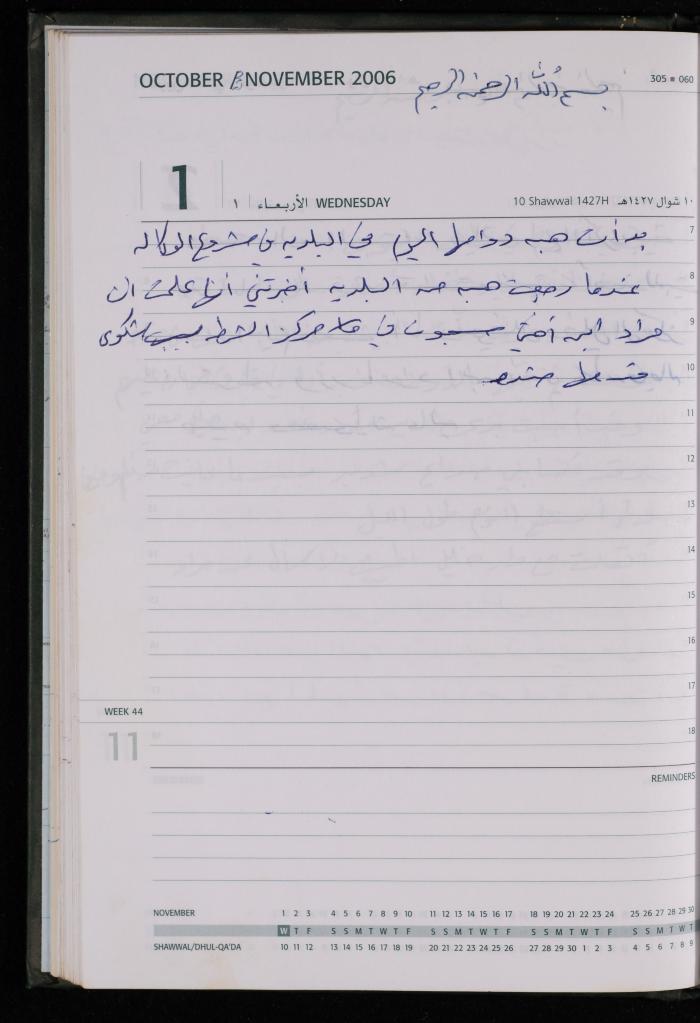 OCTOBER NOVEMBER 2006
بسم الله الرحمن الرحيم
305 060
1
١ الأربعاء WEDNESDAY
10 Shawwal 1427H ١٠ شوال ١٤٢٧هـ
7
بدأت هبه دوامها اليوم في البلديه في مشروع الوكاله
8
عندما رجعت هبه من البلديه أخبرتني أنها علمت ان
9
مراد ابن أختي مسجون في مركز الشرطه بسبب شكوى
10
ضده
11
12
13
14
15
16
17
WEEK 44
11
18
REMINDERS
NOVEMBER 1 2 3 4 5 6 7 8 9 10 11 12 13 14 15 16 17 18 19 20 21 22 23 24 25 26 27 28 29 30
W T F S S M T W T F S S M T W T F S S M T W T F S S M T W T
SHAWWAL/DHUL-QA'DA 10 11 12 13 14 15 16 17 18 19 20 21 22 23 24 25 26 27 28 29 30 1 2 3 4 5 6 7 8 9